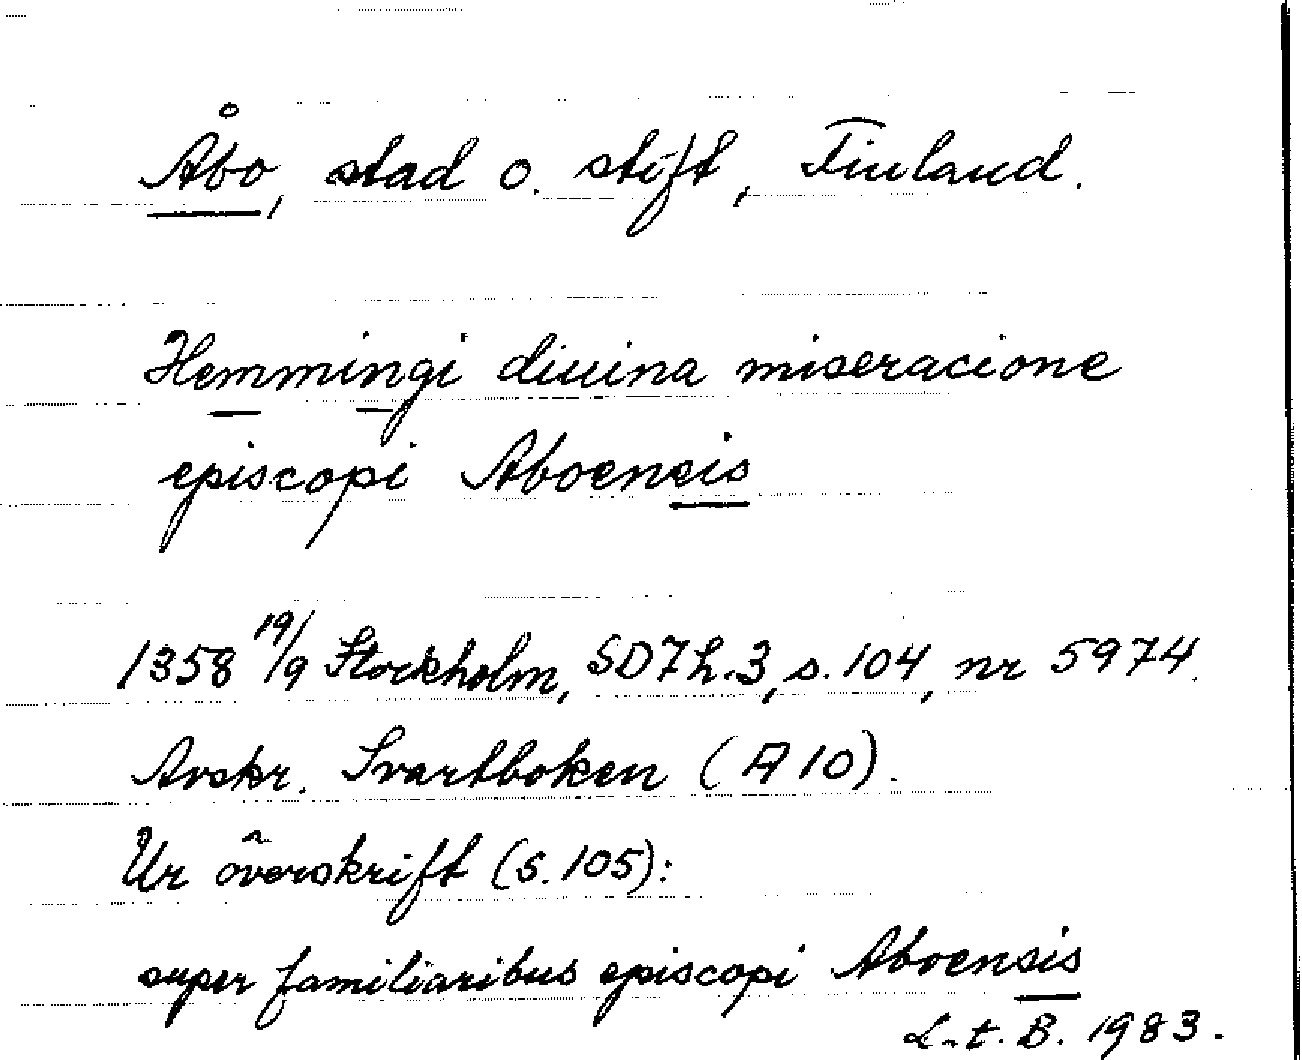 Åbo, stad o. stift, Finland.
Hemmingi diuina miseracione
episcopi Aboensis
1358 19/9 Stockholm, SD7h.3, s.104, nr 5974.
Avskr. Svartboken (A 10).
Ur överskrift (s. 105):
super familiaribus episcopi Aboensis
L-t. B. 1983.